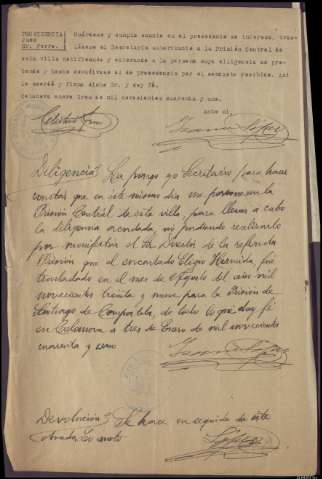 PROVIDENCIA Guárdese y cumpla cuanto en el precedente se interesa, tras-
JUEZ ládese el Secretario autorizante a la Prisión Central de
Sr. Parra. esta villa notificando y enterando a la persona cuya diligencia se pre-
tende y hecho devuélvase al de procedencia por el conducto recibido. Así
lo acordó y firma dicho Sr. y doy fé.
Celanova enero tres de mil novecientos cuarenta y uno.
Ante mi
Diligencia. La pongo yo Secretario para hacer
constar que en este mismo dia me persone en la
Prisión Central de esta villa, para llevar a cabo
la diligencia acordada, no pudiendo realizarlo
por manifestar el Sr. Director de la referida
Prision que el encartado Eligio Hermida, fue
trasladado en el mes de Agosto del año mil
novecientos treinta y nueve para la Prisión de
Santiago de Compostela, de todo lo que doy fé
en Celanova a tres de Enero de mil novecientos
cuarenta y uno
Devolución. Se hace en seguida de este